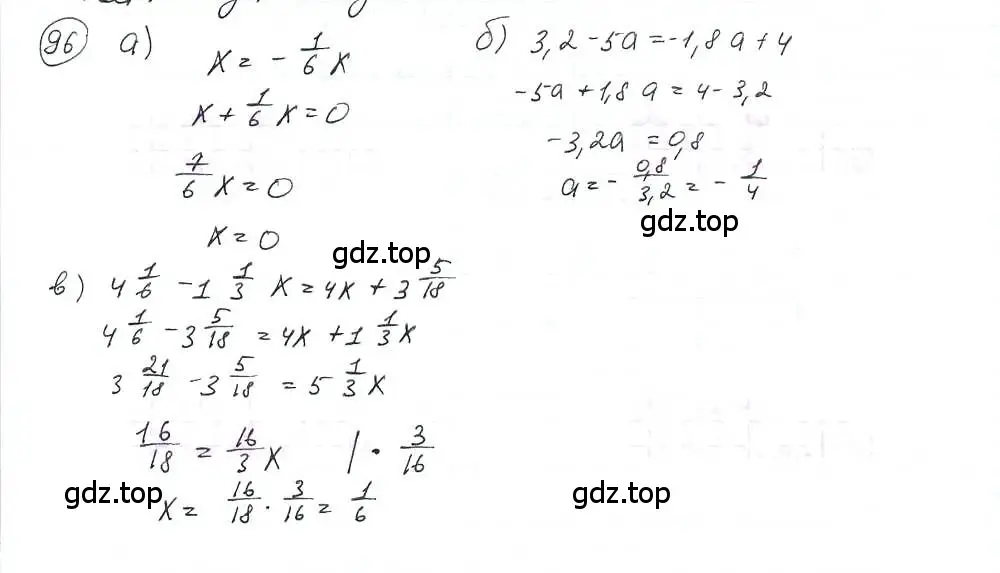 96 а) x = - 1/6 x
x + 1/6 x = 0
7/6 x = 0
x = 0
б) 3,2 - 5a = -1,8 a + 4
-5a + 1,8 a = 4 - 3,2
-3,2a = 0,8
a = - 0,8/3,2 = - 1/4
gdz.top
gdz.top
в) 4 1/6 - 1 1/3 x = 4x + 3 5/18
4 1/6 - 3 5/18 = 4x + 1 1/3 x
3 21/18 - 3 5/18 = 5 1/3 x
16/18 = 16/3 x | · 3/16
x = 16/18 · 3/16 = 1/6
gdz.top
gdz.top